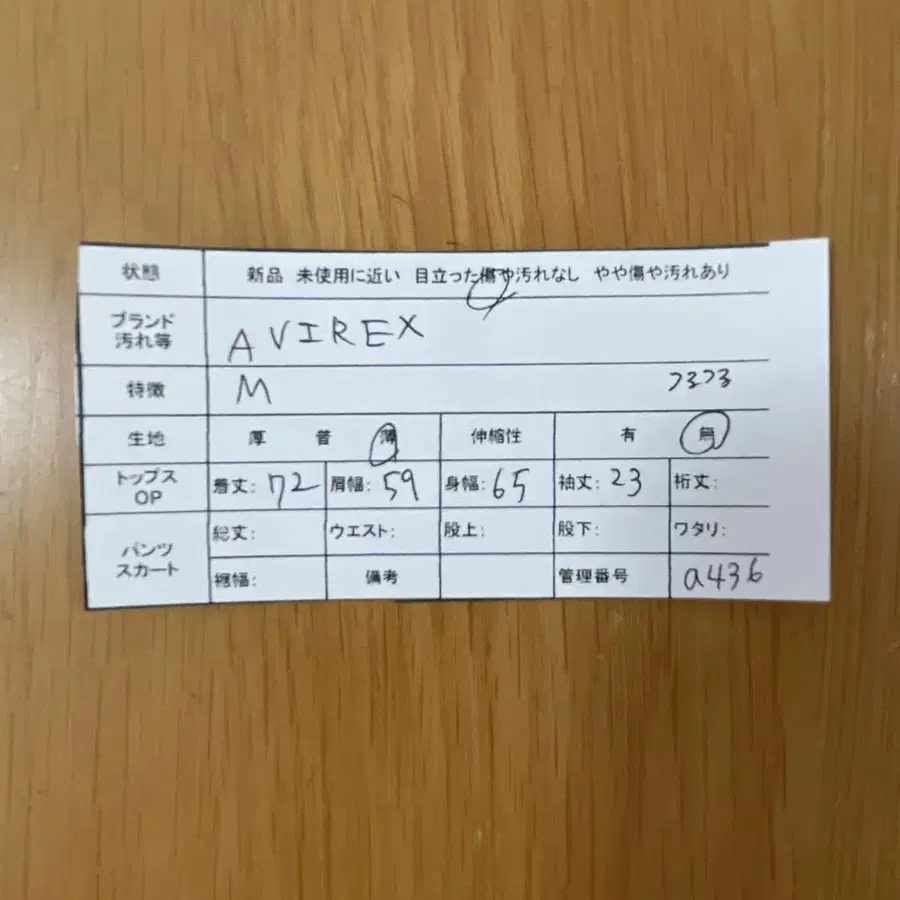 状態 新品 未使用に近い 目立った傷や汚れなし やや傷や汚れあり
ブランド
汚れ等 AVIREX
特徴 M
生地 厚 普 薄 伸縮性 有 無
トップス
OP 着丈: 72 肩幅: 59 身幅: 65 袖丈: 23 裄丈:
パンツ
スカート 総丈: ウエスト: 股上: 股下: ワタリ:
裾幅: 備考 管理番号 a436